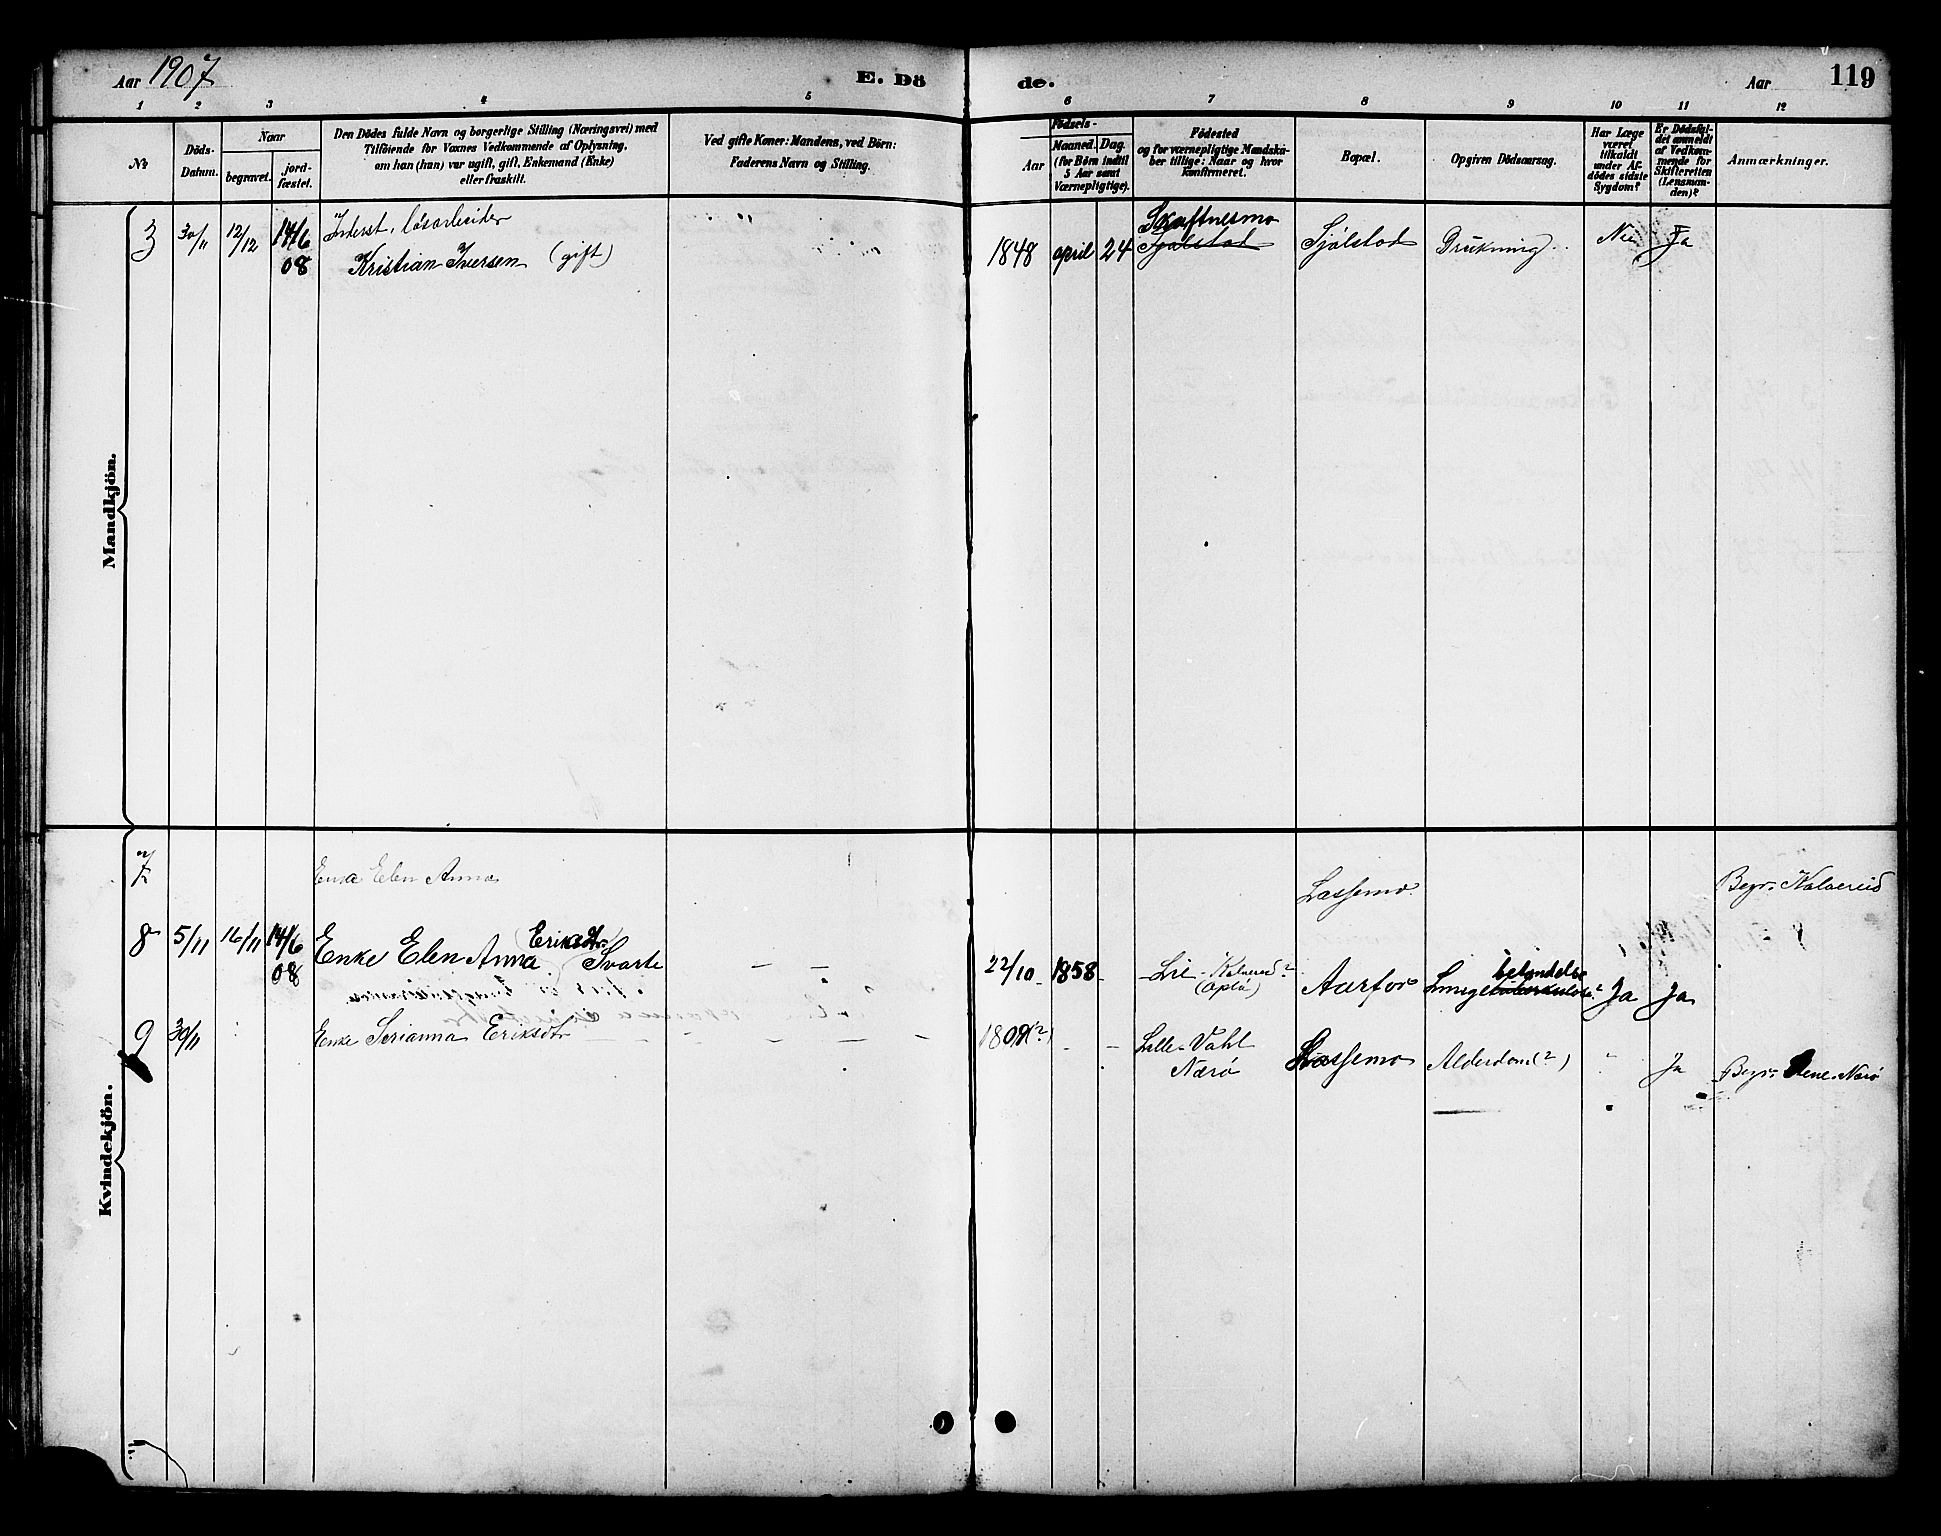 Aar 1907
E. Dö de.
Aar
119
1 2 3 4 5 6 7 8 9 10 11 12
№
Döds-
Datum.
Naar
begravet.
jord-
fæstet.
Den Dödes fulde Navn og borgerlige Stilling (Næringsvei) med
Tilföiende for Voxnes Vedkommende af Oplysning,
om han (hun) var ugift, gift, Enkemand (Enke)
eller fraskilt.
Ved gifte Koner: Mandens, ved Börn:
Faderens Navn og Stilling.
Födsels-
Aar
Maaned. Dag.
(for Börn indtil
5 Aar samt
Værnepligtige).
Födested
og for værnepligtige Mandska-
ber tillige: Naar og hvor
konfirmeret.
Bopæl.
Opgiven Dödsaarsag.
Har Læge
været
tilkaldt
under Af-
dödes sidste
Sygdom?
Er Dödsfal-
det anmeldt
af Vedkom-
mende for
Skifteretten
(Lensman-
den)?
Anmærkninger.
Mandkjön.
3 30/11 12/12 14/6 08
Inderst, løsarbeider
Kristian Iversen (gift)
1848 april 24
Skaftnesmo
Sjølstad
Sjølstad Drukning Nei Ja
Kvindekjön.
7 Elen Anna Lassemo Begr.
8 5/11 16/11 14/6 08
Enke Elen Anna (Eriksdtr.) Svarte
- -
22/10 1858
Lie - (Oplø)
Aarfor Lungetuberkulose? betændelse Ja Ja
9 30/11
Enke Serianna Eriksdtr
- - - - - -
(?) - -
Lille-Vahl
Nærø
Lassemo Alderdom(?) " Ja Begr. Nærø